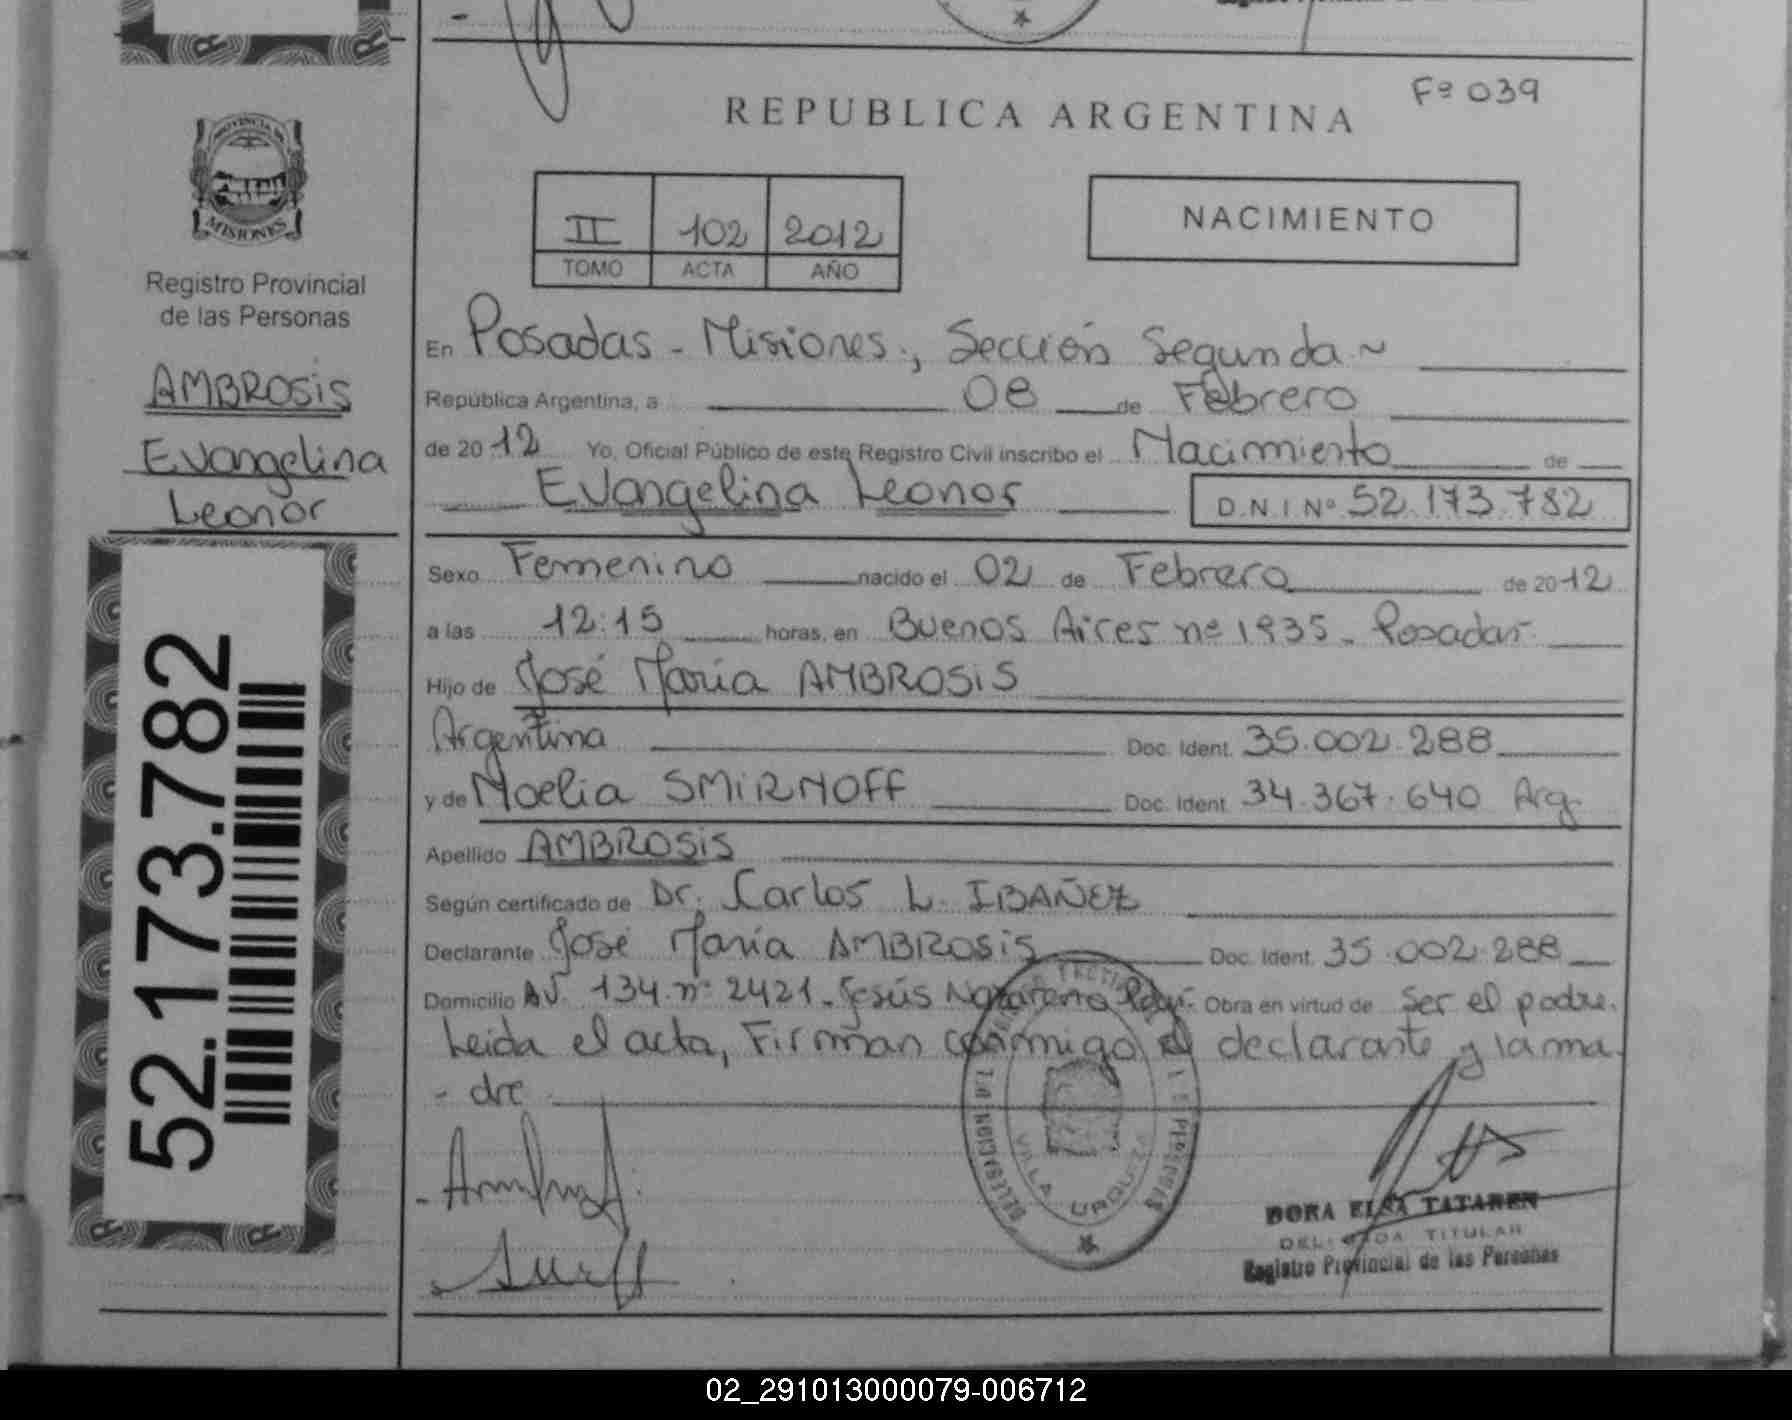 Fº 039
REPUBLICA ARGENTINA
PROVINCIA DE
MISIONES
II 102 2012
TOMO ACTA AÑO
NACIMIENTO
Registro Provincial
de las Personas
AMBROSiS
Evangelina
Leonor
52.173.782
En Posadas - Misiones, Sección Segunda
República Argentina, a 08 de Febrero
de 2012 Yo, Oficial Público de este Registro Civil inscribo el Nacimiento de
Evangelina Leonor D.N.I Nº 52.173.782
Sexo Femenino nacido el 02 de Febrero de 2012
a las 12:15 horas, en Buenos Aires nº 1935 - Posadas
Hijo de José María AMBROSiS
Argentina Doc. Ident. 35.002.288
y de Noelia SMiRNOFF Doc. Ident. 34.367.640 Arg.
Apellido AMBROSiS
Según certificado de Dr. Carlos L. IBAÑEZ
Declarante José María AMBROSiS Doc. Ident. 35.002.288
Domicilio AV. 134 nº 2421 - Jesús Nazareno Obra en virtud de Ser el padre.
Leida el acta, Firman conmigo el declarante y la ma
- dre
VILLA URQUIZA
DORA ELSA TATAREN
DELEGADA TITULAR
Registro Provincial de las Personas
02_291013000079-006712